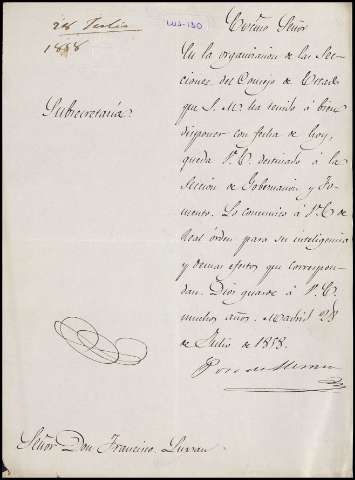 28 Julio
1858
LUJ-130
Exmo. Señor
Subsecretaría
En la organizacion de las Sec-
ciones del Consejo de Estado
que S. M. ha tenido á bien
disponer con fecha de hoy,
queda V. E. destinado á la
Sección de Gobernacion y Fo-
mento. Lo comunico á V. E. de
Real órden para su inteligencia
y demas efectos que correspon-
dan. Dios guarde á V. E.
muchos años. Madrid 28
de Julio de 1858.
Señor Don Francisco Luxan